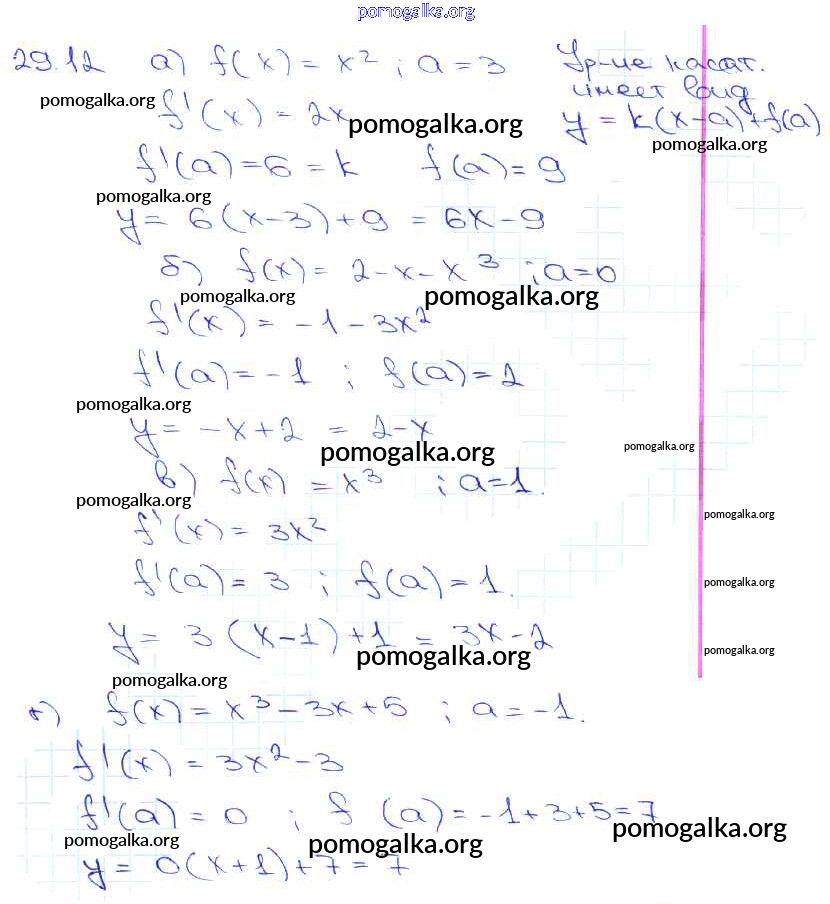 pomogalka.org
29.12 а) f(x) = x² ; a = 3 Ур-ие касат.
имеет вид
pomogalka.org
f'(x) = 2x y = k(x-a)+f(a)
pomogalka.org
pomogalka.org
f'(a) = 6 = k f(a) = 9
pomogalka.org
y = 6(x-3)+9 = 6x-9
б) f(x) = 2-x-x³ ; a=0
pomogalka.org pomogalka.org
f'(x) = -1-3x²
f'(a) = -1 ; f(a) = 2
pomogalka.org
y = -x+2 = 2-x
pomogalka.org pomogalka.org
в) f(x) = x³ ; a=1.
pomogalka.org
pomogalka.org
f'(x) = 3x²
f'(a) = 3 ; f(a) = 1.
pomogalka.org
y = 3(x-1)+1 = 3x-2
pomogalka.org
pomogalka.org
pomogalka.org
г) f(x) = x³-3x+5 ; a = -1.
f'(x) = 3x²-3
f'(a) = 0 ; f(a) = -1+3+5=7
pomogalka.org
pomogalka.org pomogalka.org
y = 0(x+1)+7 = 7